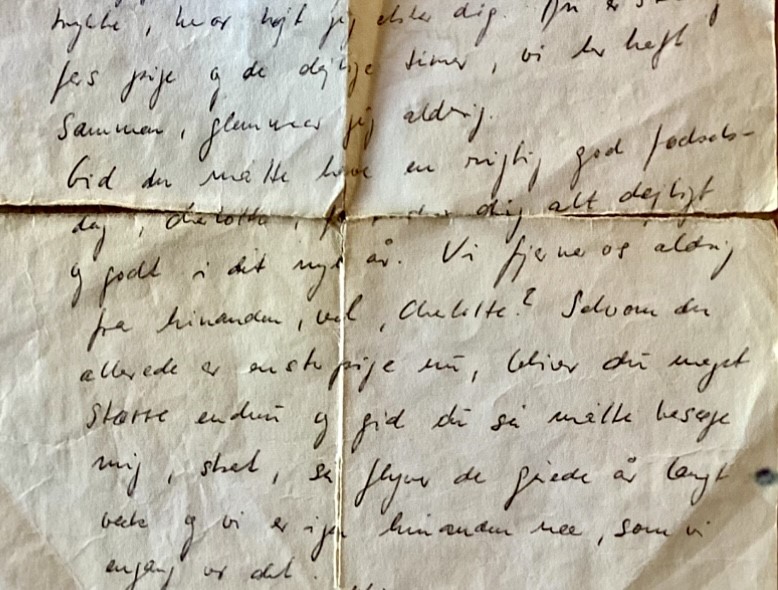 trykke, hvor højt jeg elsker dig. Du er
pige og de dejlige timer, vi har haft
sammen, glemmer jeg aldrig.
Gid du måtte have en rigtig god fødsels-
dag, Charlotte, dig alt dejligt
og godt i dit nye år. Vi fjerner os aldrig
fra hinanden, vel, Charlotte? Selvom du
allerede er en stor pige nu, bliver du meget
større endnu og gid du så måtte besøge
mig, skat, så flyver de grå år langt
væk og vi er igen hinanden nær, som vi
engang var det.